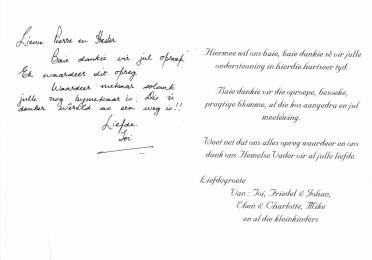 Liewe Pierre en Hester
Baie dankie vir jul oproep
Ek waardeer dit opreg
Waardeer mekaar solank
julle nog bymekaar is. Dis 'n
donker wêreld as een weg is!!
Liefde
Toi
Hiermee wil ons baie, baie dankie sê vir julle
ondersteuning in hierdie hartseer tyd.
Baie dankie vir die oproepe, besoeke,
pragtige blomme, al die kos aangedra en jul
meelewing.
Weet net dat ons alles opreg waardeer en ons
dank ons Hemelse Vader vir al julle liefde.
Liefdegroete
Van : Toi, Friedel & Johan,
Eben & Charlotte, Mike
en al die kleinkinders